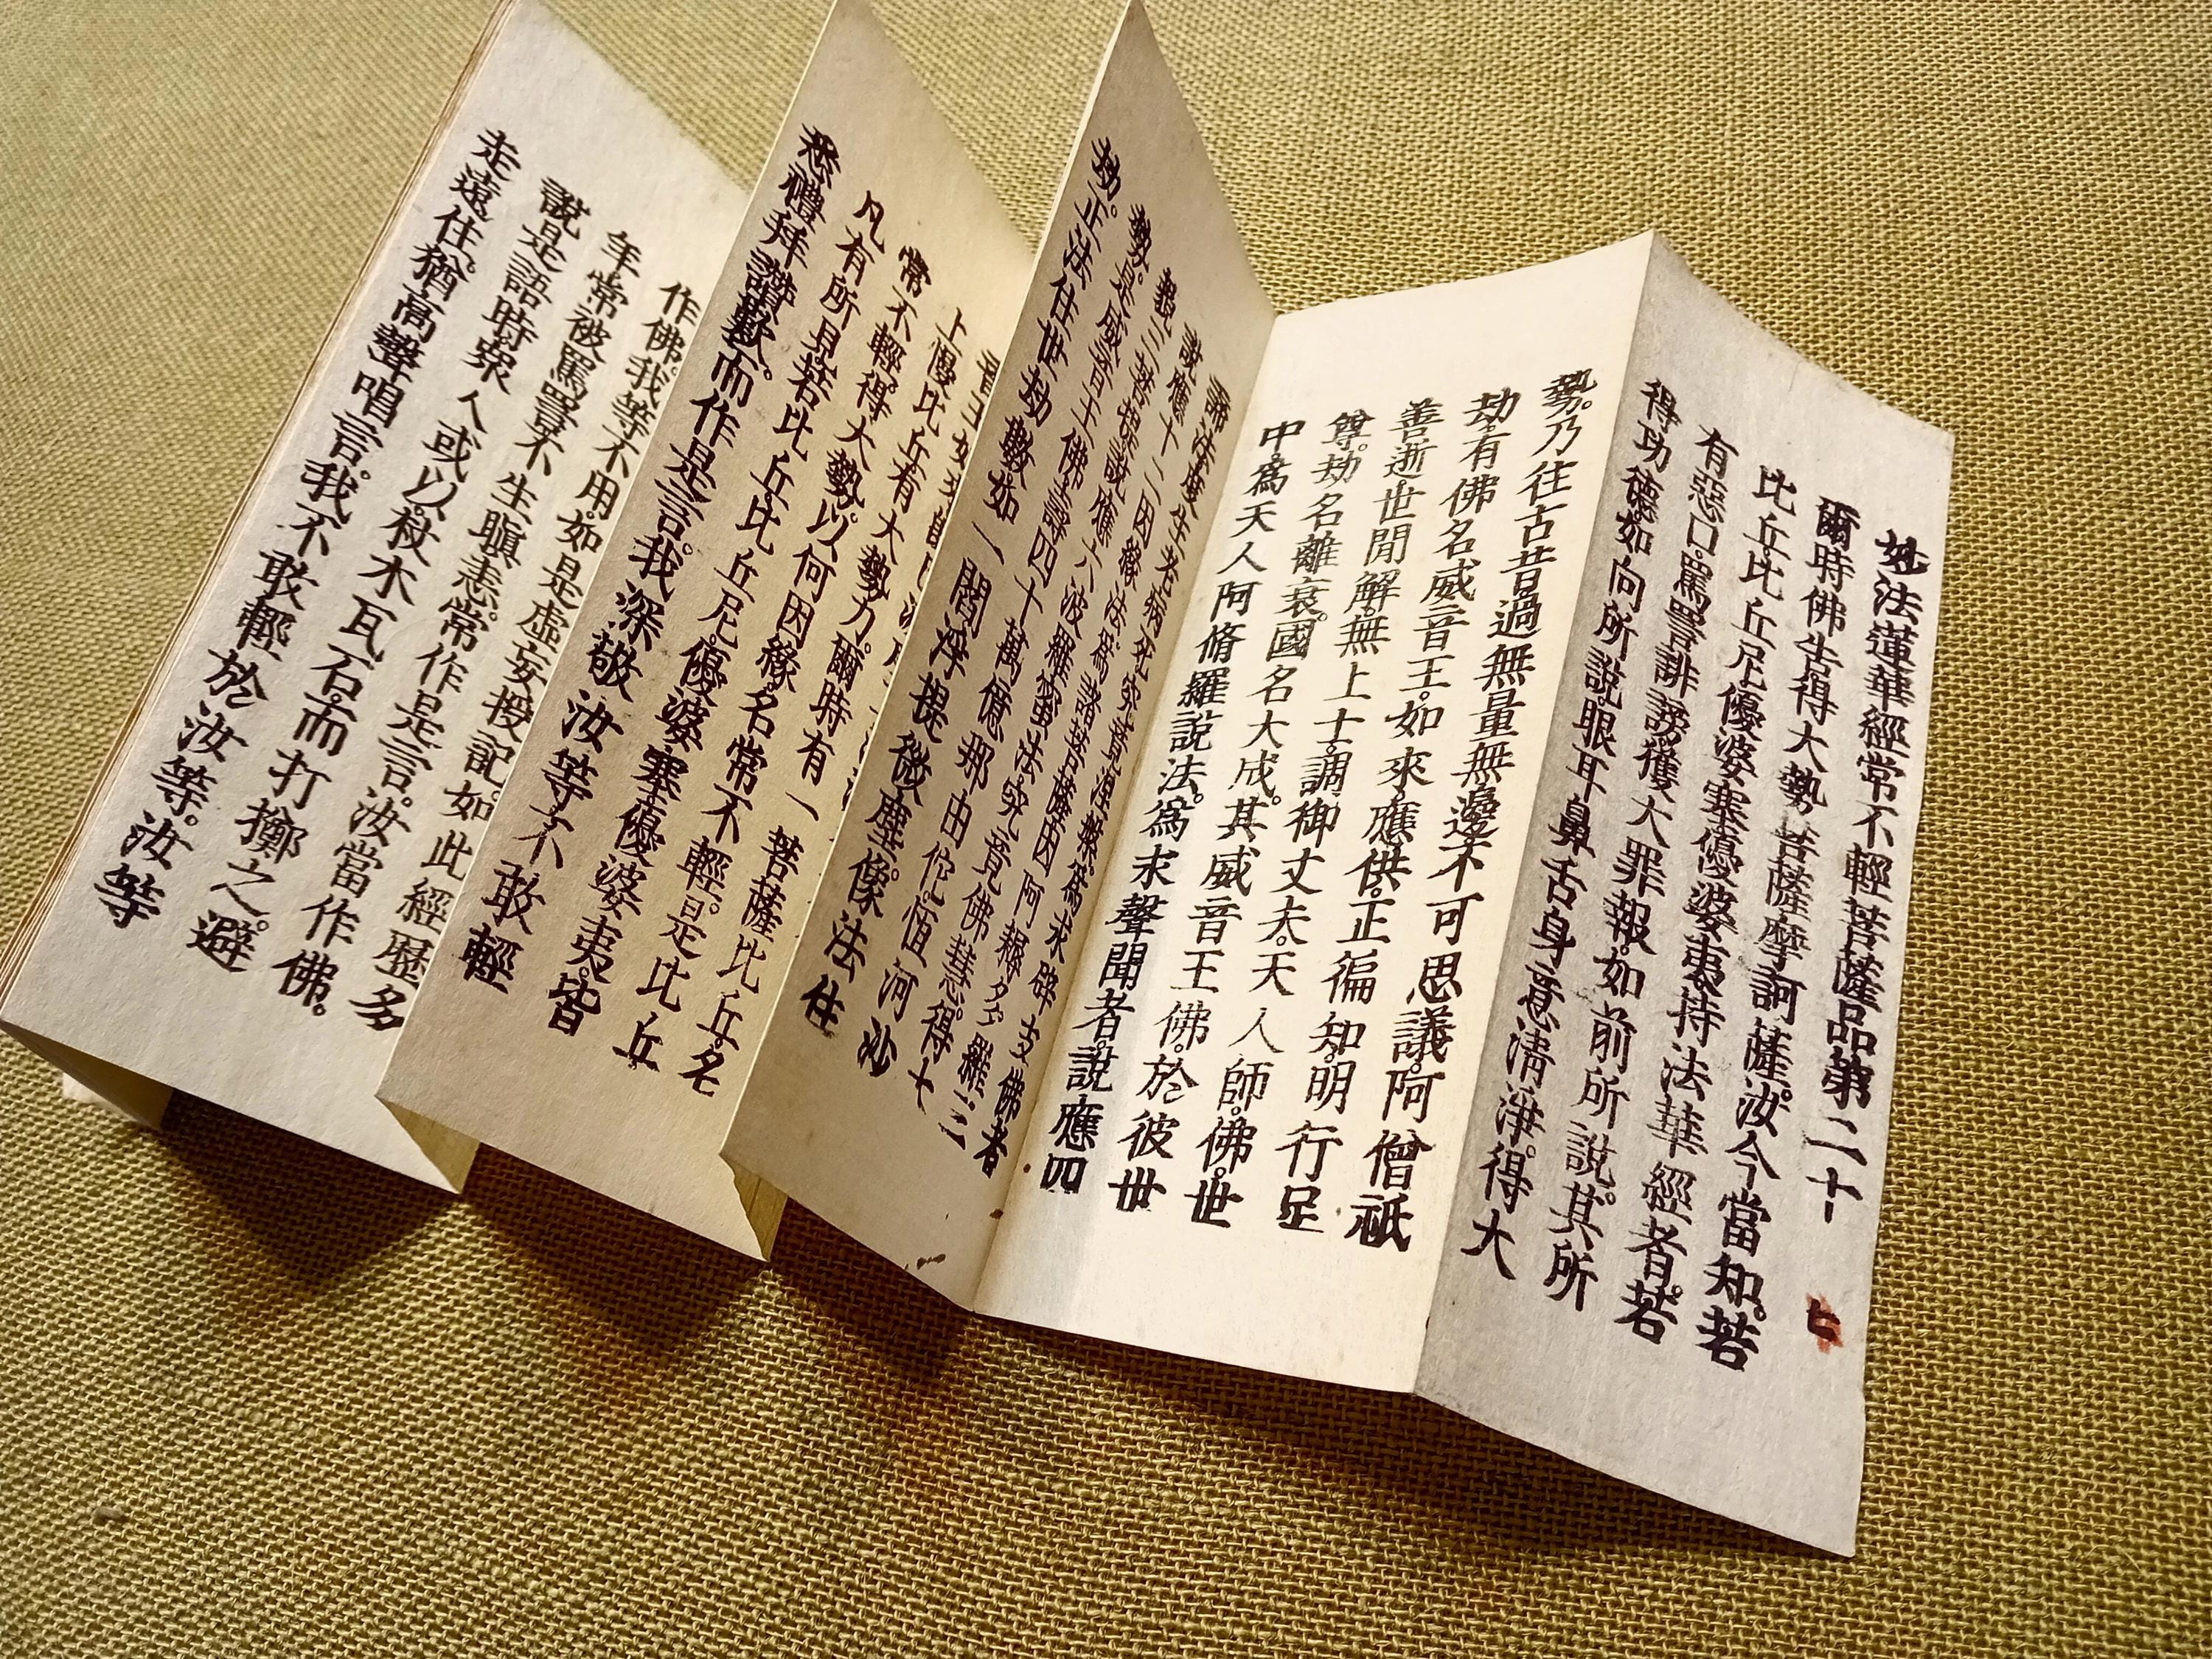 妙法蓮華經常不輕菩薩品第二十
爾時佛告得大勢菩薩摩訶薩。汝今當知。若
比丘比丘尼優婆塞優婆夷持法華經者。若
有惡口。罵詈誹謗獲大罪報。如前所說。其所
得功德。如向所說。眼耳鼻舌身意清淨。得大
勢。乃往古昔過無量無邊不可思議。阿僧祇
劫。有佛名威音王。如來應供。正徧知。明行足
善逝。世間解。無上士。調御丈夫。天人師。佛。世
尊。劫名離衰。國名大成。其威音王佛。於彼世
中。為天人阿脩羅說法。為求聲聞者。說應四
諦法。度生老病死。究竟涅槃。為求辟支佛者
說應十二因緣法。為諸菩薩。因阿耨多羅三
藐三菩提。說應六波羅蜜法。究竟佛慧。得大
勢。是威音王佛。壽四十萬億那由佗恆河沙
劫。正法住世劫數。如一閻浮提微塵。像法住
上慢比丘有大勢力。爾時有一菩薩比丘。名
常不輕。得大勢。以何因緣。名常不輕。是比丘
凡有所見。若比丘。比丘尼。優婆塞優婆夷。皆
悉禮拜讚歎。而作是言。我深敬汝等。不敢輕
作佛。我等不用。如是虛妄授記。如此經歷多
年。常被罵詈。不生瞋恚。常作是言。汝當作佛。
說是語時。衆人或以杖木瓦石。而打擲之。避
走遠住。猶高聲唱言。我不敢輕於汝等。汝等